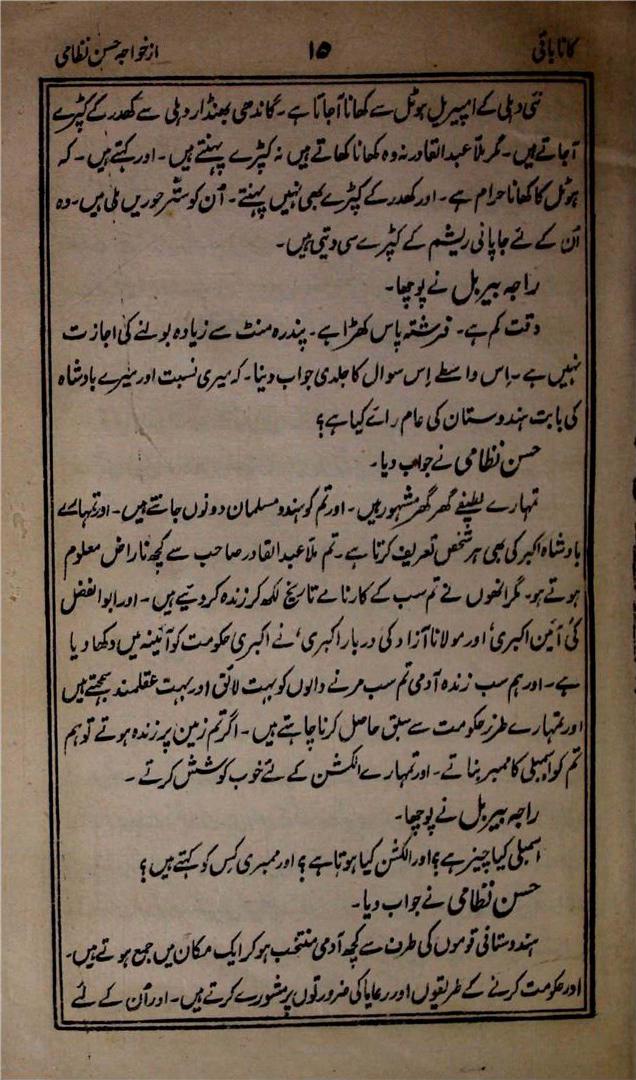 کانا باتی ۱۵ از خواجہ حسن نظامی
نئی دہلی کے امپیریل ہوٹل سے کھانا آجاتا ہے۔ گاندھی بھنڈار دہلی سے کھدر کے کپڑے
آجاتے ہیں۔ مگر ملا عبدالقادر نہ وہ کھانا کھاتے ہیں نہ کپڑے پہنتے ہیں۔ اور کہتے ہیں۔ کہ
ہوٹل کا کھانا حرام ہے۔ اور کھدر کے کپڑے بھی نہیں پہنتے۔ اُن کو ستّر حوریں ملی ہیں۔ وہ
اُن کے لئے جاپانی ریشم کے کپڑے سی دیتی ہیں۔
راجہ بیربل نے پوچھا۔
وقت کم ہے۔ فرشتہ پاس کھڑا ہے۔ پندرہ منٹ سے زیادہ بولنے کی اجازت
نہیں ہے۔ اِس واسطے اِس سوال کا جلدی جواب دینا۔ کہ میری نسبت اور میرے بادشاہ
کی بابت ہندوستان کی عام رائے کیا ہے؟
حسن نظامی نے جواب دیا۔
تمہارے لطیفے گھر گھر مشہور ہیں۔ اور تم کو ہندو مسلمان دونوں جانتے ہیں۔ اور تمہارے
بادشاہ اکبر کی بھی ہر شخص تعریف کرتا ہے۔ تم ملا عبدالقادر صاحب سے کچھ ناراض معلوم
ہوتے ہو۔ مگر انھوں نے تم سب کے کارنامے تاریخ لکھ کر زندہ کر دیئے ہیں۔ اور ابوالفضل
کی ’آئین اکبری‘ اور مولانا آزاد کی ’دربار اکبری‘ نے اکبری حکومت کو آئینہ میں دکھا دیا
ہے۔ اور ہم سب زندہ آدمی تم سب مرنے والوں کو بہت لائق اور بہت عقلمند سمجھتے ہیں
اور تمہارے طرز حکومت سے سبق حاصل کرنا چاہتے ہیں۔ اگر تم زمین پر زندہ ہوتے تو ہم
تم کو اسمبلی کا ممبر بناتے۔ اور تمہارے الکشن کے لئے خوب کوشش کرتے۔
راجہ بیربل نے پوچھا۔
اسمبلی کیا چیز ہے؟ اور الکشن کیا ہوتا ہے؟ اور ممبری کس کو کہتے ہیں؟
حسن نظامی نے جواب دیا۔
ہندوستانی قوموں کی طرف سے کچھ آدمی منتخب ہو کر ایک مکان میں جمع ہوتے ہیں۔
اور حکومت کرنے کے طریقوں اور رعایا کی ضرورتوں پر مشورے کرتے ہیں۔ اور اُن کے لئے